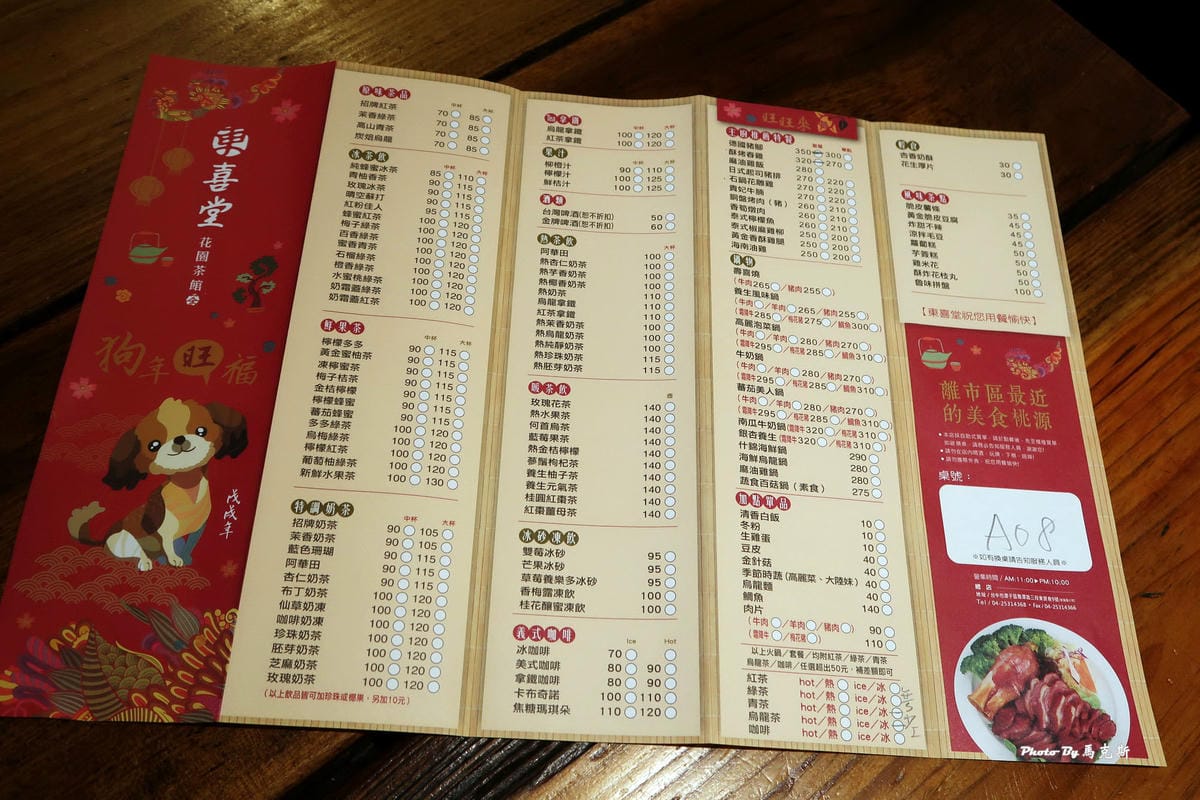 東喜堂
花園茶館
狗年旺福
戊戌年
原味茶品
中杯 大杯
招牌紅茶 70 85
茉香綠茶 70 85
高山青茶 70 85
炭焙烏龍 70 85
冰茶飲
中杯 大杯
純蜂蜜冰茶 85 110
青柚香茶 90 115
玫瑰冰茶 90 115
晴空蘇打 90 115
紅粉佳人 95 110
蜂蜜紅茶 90 115
梅子綠茶 100 120
百香綠茶 100 120
蜜香青茶 100 120
石榴綠茶 100 120
橙香綠茶 100 120
水蜜桃綠茶 100 120
奶霜蓋綠茶 100 120
奶霜蓋紅茶 100 120
鮮果茶
中杯 大杯
檸檬多多 90 115
黃金蜜柚茶 90 115
凍檸蜜茶 90 115
梅子桔茶 90 115
金桔檸檬 90 115
檸檬蜂蜜 90 115
蕃茄蜂蜜 90 115
多多綠茶 90 115
烏梅綠茶 100 120
檸檬紅茶 100 120
葡萄柚綠茶 100 120
新鮮水果茶 100 130
特調奶茶
中杯 大杯
招牌奶茶 90 105
茉香奶茶 90 105
藍色珊瑚 90 105
阿華田 90 115
杏仁奶茶 90 115
布丁奶茶 100 120
仙草奶凍 100 120
咖啡奶凍 100 120
珍珠奶茶 100 120
胚芽奶茶 100 120
芝麻奶茶 100 120
玫瑰奶茶 100 120
(以上飲品皆可加珍珠或椰果，另加10元)
加拿鐵
中杯 大杯
烏龍拿鐵 100 120
紅茶拿鐵 100 120
果汁
中杯 大杯
柳橙汁 90 110
檸檬汁 100 125
鮮桔汁 100 125
酒類
台灣啤酒(恕不折扣) 50
金牌啤酒(恕不折扣) 60
熱茶飲
大杯
阿華田 100
熱杏仁奶茶 100
熱芋香奶茶 100
熱椰香奶茶 100
熱奶茶 110
烏龍拿鐵 100
紅茶拿鐵 100
熱茉香奶茶 100
熱烏龍奶茶 100
熱純靜奶茶 100
熱珍珠奶茶 115
熱胚芽奶茶 115
暖茶飲
壺
玫瑰花茶 140
熱水果茶 140
何首烏茶 140
藍莓果茶 140
熱金桔檸檬 140
蔘鬚枸杞茶 140
養生柚子茶 140
養生元氣茶 140
桂圓紅棗茶 140
紅棗薑母茶 140
冰砂凍飲
雙莓冰砂 95
芒果冰砂 95
草莓養樂多冰砂 95
香梅露凍飲 100
桂花釀蜜凍飲 100
義式咖啡
Ice Hot
冰咖啡 70
美式咖啡 80 90
拿鐵咖啡 80 90
卡布奇諾 100 110
焦糖瑪琪朵 110 120
旺旺來
主廚推薦特餐
套餐 單點
德國豬腳 350 300
酥烤春雞 320 270
麻油雞飯
日式起司豬排 270 220
石鍋花雕雞 270 220
貴妃牛腩 270 220
銅盤烤肉(豬) 260 210
香筍燉肉 260 210
泰式檸檬魚 260 210
泰式椒麻雞柳 250 200
黃金香酥雞腿 250 200
海南油雞 250 200
鍋物
壽喜燒
(牛肉265 / 豬肉255)
養生風味鍋
(牛肉/羊肉265/豬肉255)
(霜降牛285/梅花豬275/鯛魚300)
高麗泡菜鍋
(牛肉/羊肉280/豬肉270)
(霜降牛295/梅花豬285/鯛魚310)
牛奶鍋
(牛肉/羊肉280/豬肉270)
(霜降牛295/梅花豬285/鯛魚310)
蕃茄美人鍋
(牛肉/羊肉280/豬肉270)
(霜降牛295/梅花豬285/鯛魚310)
南瓜牛奶鍋(霜降牛320/梅花豬310)
銀杏養生(霜降牛320/梅花豬310)
什錦海鮮鍋 290
海鮮烏龍鍋 280
麻油雞鍋 280
蔬食百菇鍋(素食) 275
加點單品
清香白飯 10
冬粉 10
生雞蛋 10
豆皮 10
金針菇 40
季節時蔬(高麗菜、大陸妹) 40
烏龍麵 40
鯛魚 40
肉片 140
(牛肉/羊肉/豬肉) 90
(霜降牛/梅花豬) 110
以上火鍋/套餐/均附紅茶/綠茶/青茶
烏龍茶/咖啡/任選超出50元，補差額即可
紅茶 hot/熱 ice/冰
綠茶 hot/熱 ice/冰
青茶 hot/熱 ice/冰
烏龍茶 hot/熱 ice/冰
咖啡 hot/熱 ice/冰
輕食
杏香奶酥 30
花生厚片 30
風味茶點
脆皮薯條 35
黃金脆皮豆腐 45
炸甜不辣 45
涼拌毛豆 45
蘿蔔糕 50
芋簽糕 50
雞米花 50
酥炸花枝丸 50
魯味拼盤 100
【東喜堂祝您用餐愉快】
離市區最近
的美食桃源
桌號：
A08
※如有換桌請告知服務人員※
營業時間 / AM:11:00▶PM:10:00
Tel / 04-25314368・Fax / 04-25314366
Photo By 馬克斯